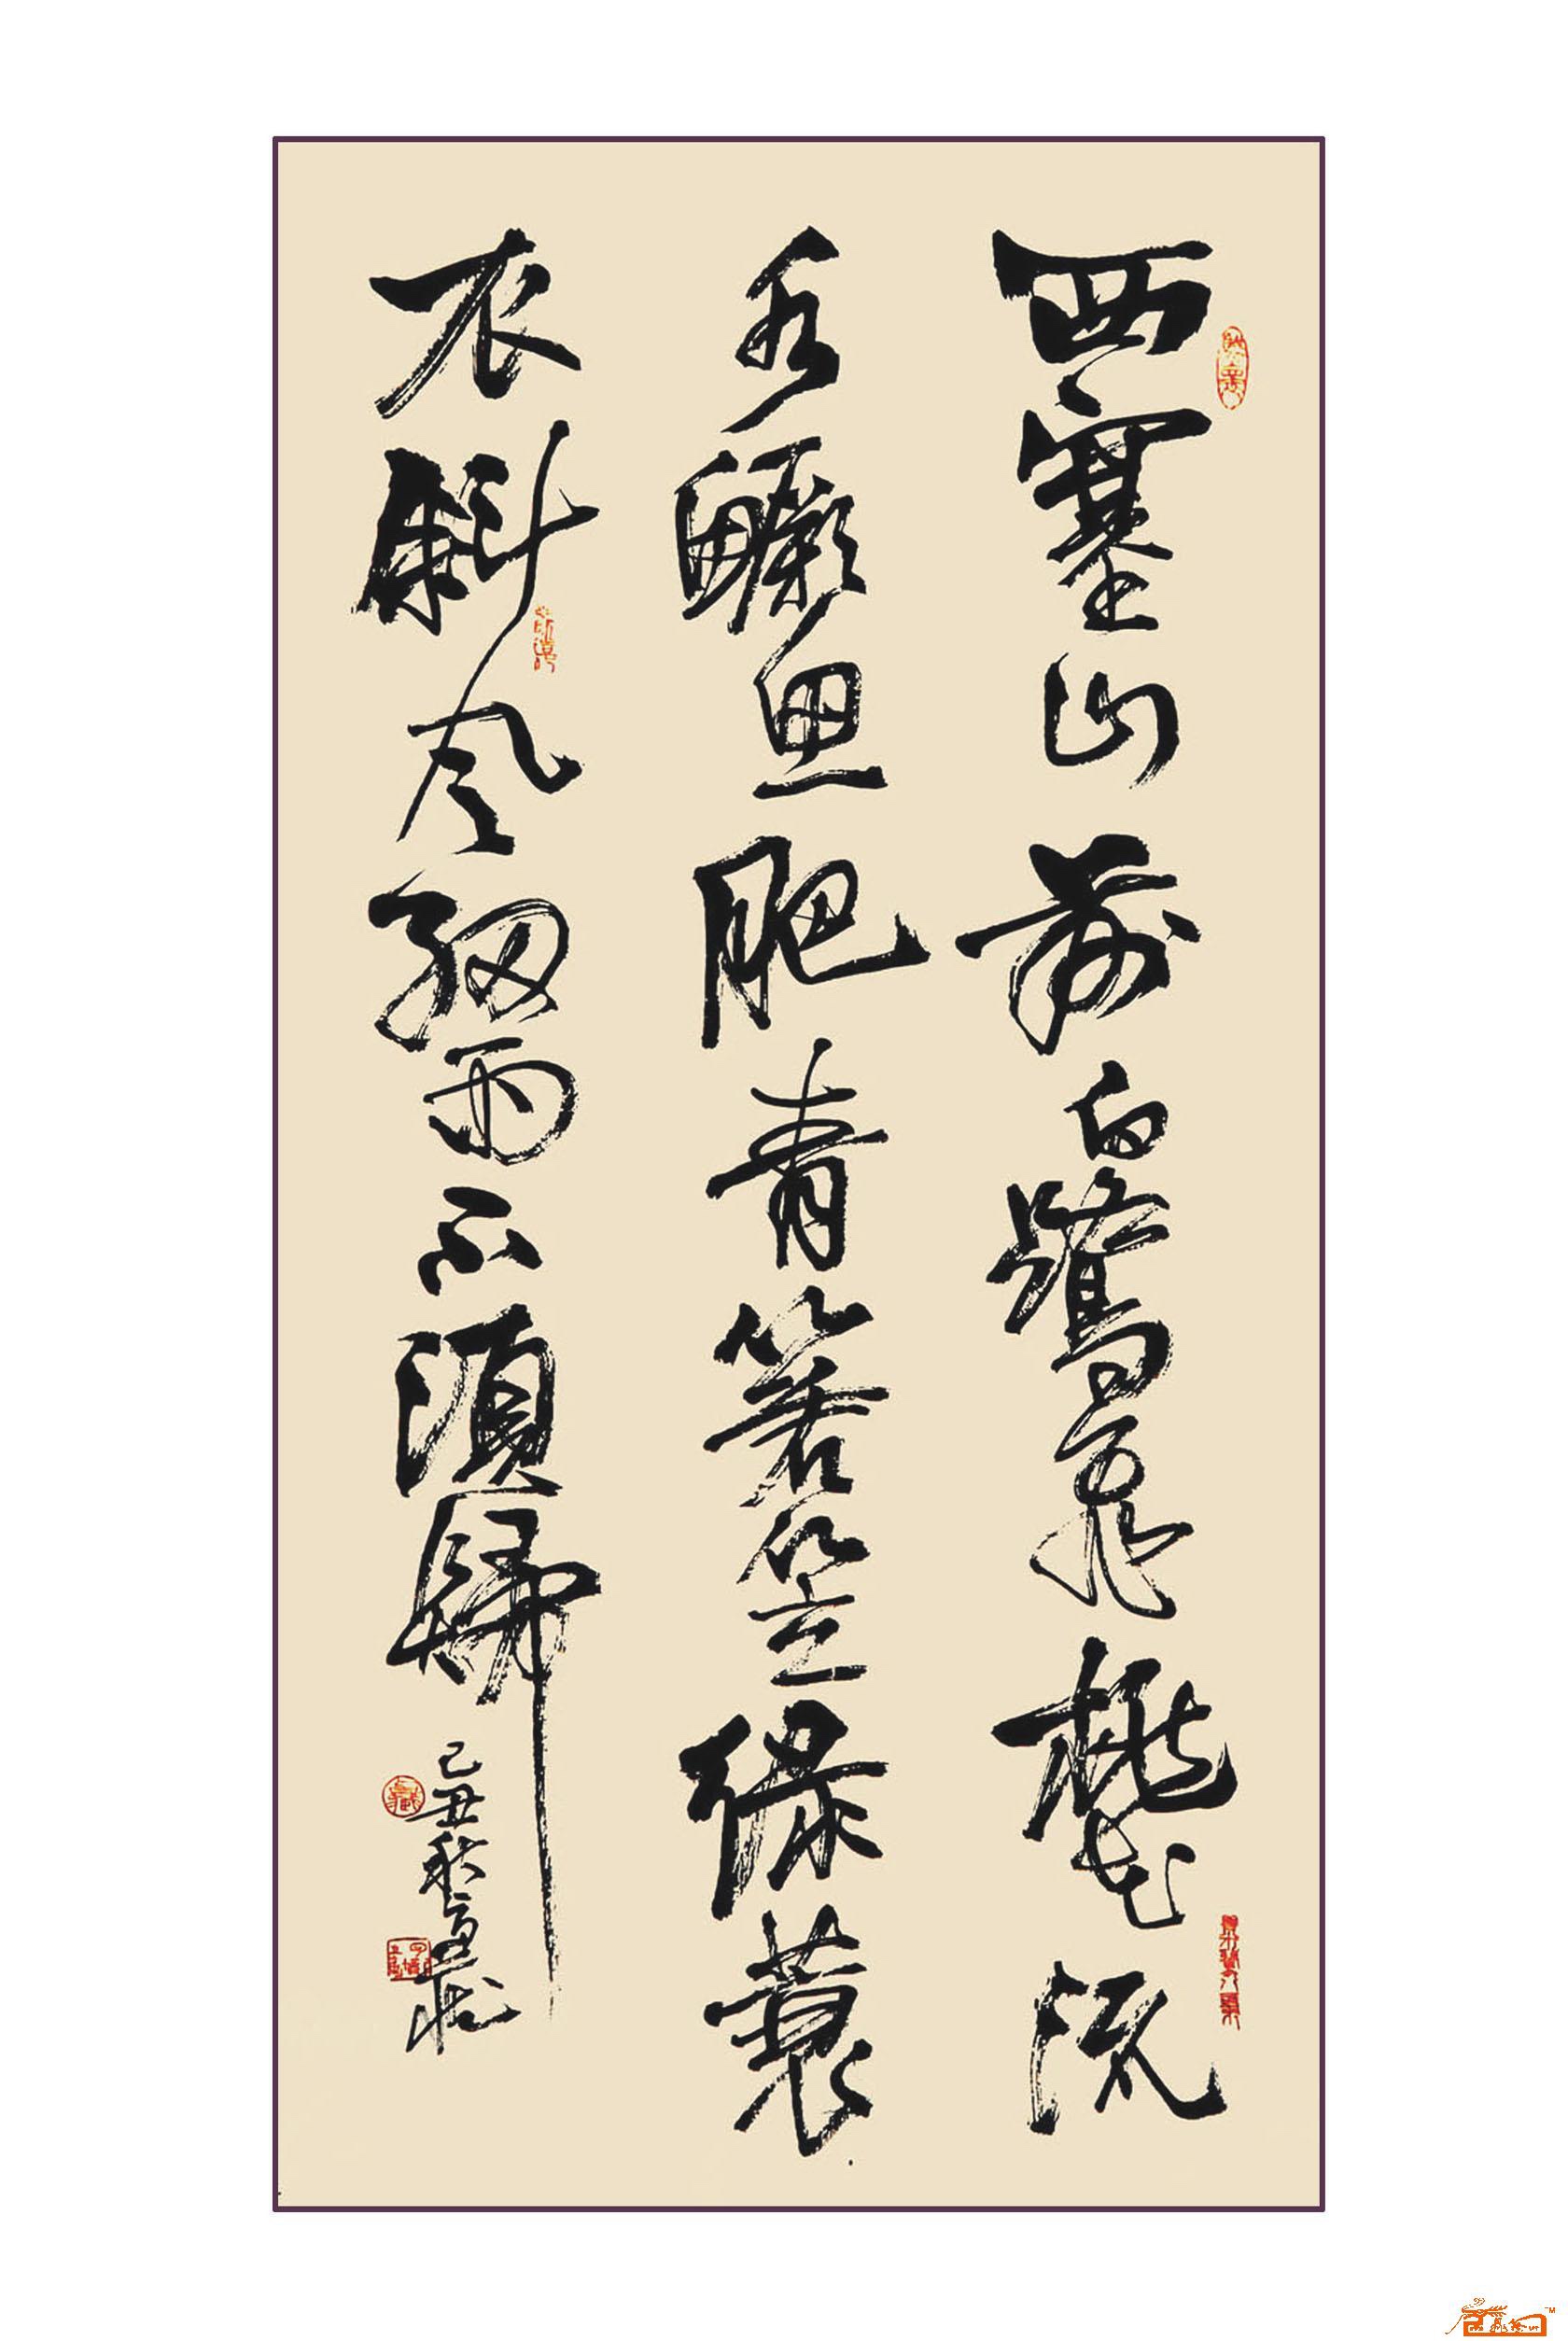 西塞山前白鷺飛桃花流
水鱖魚肥青箬笠綠蓑
衣斜風細雨不須歸
己丑秋